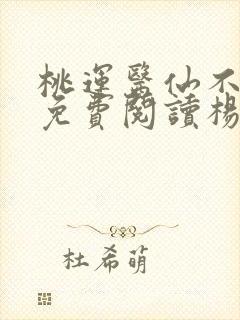 桃運醫仙不
免費閱讀楊
杜希萌